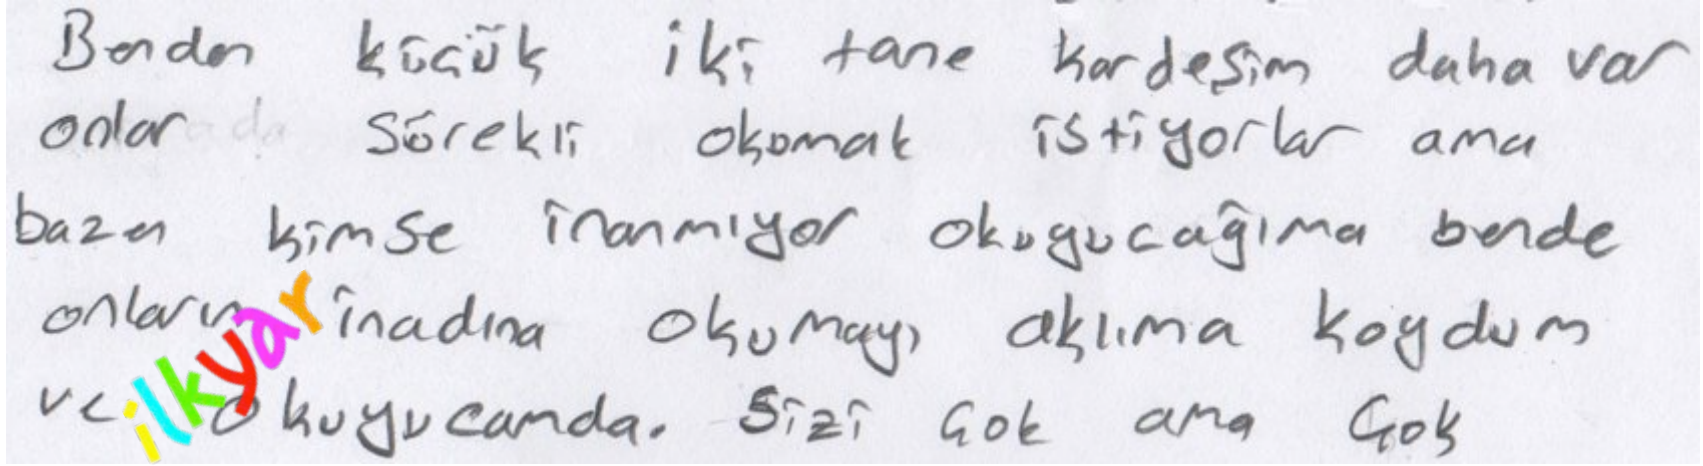 Benden küçük iki tane kardeşim daha var
onlar sürekli okumak istiyorlar ama
bazen kimse inanmıyor okuyucağıma bende
onların inadına okumayı aklıma koydum
ve okuyucamda. Sizi çok ama çok
ilkyar